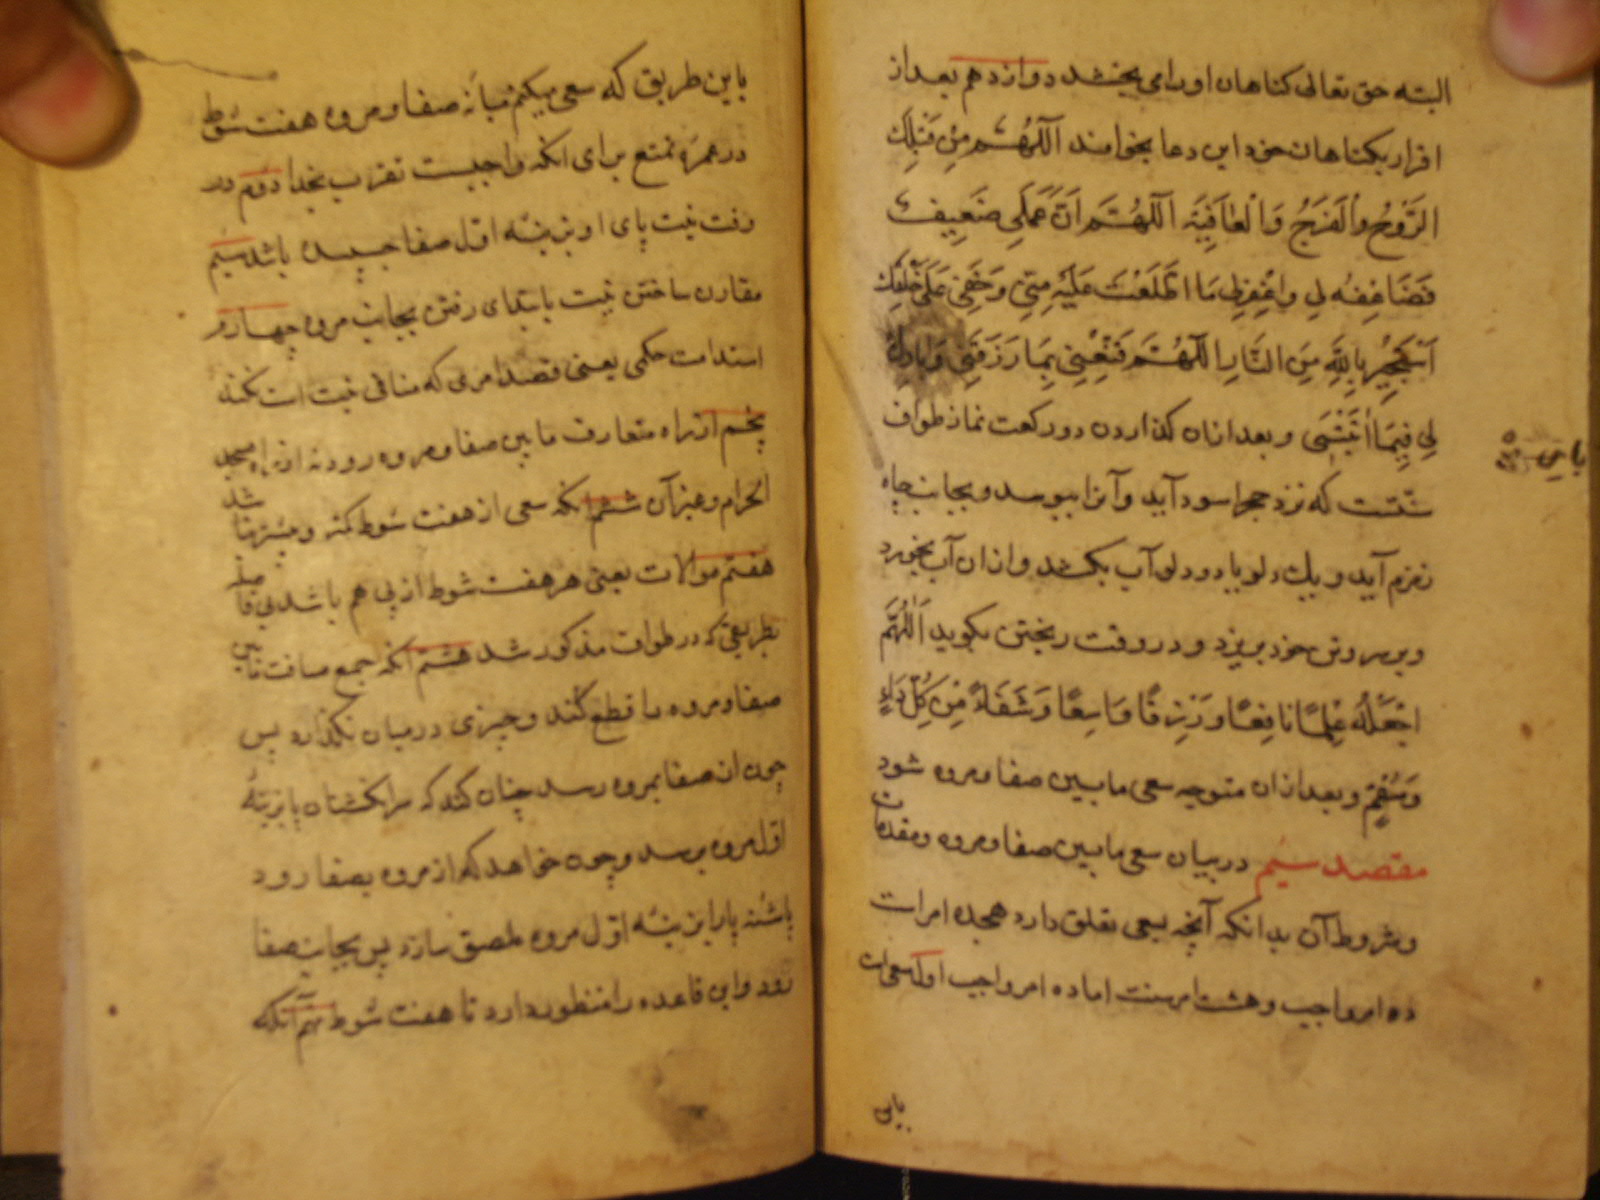 البته حق تعالی کناهان اورا می بخشد دوازدهم بعد از
اقرار بکناهان خود این دعا بخواند اَللّهُمَّ مِنْ قِبَلِكَ
الرَّوْحُ وَالْفَرَجُ وَالْعافِيَة اَللّهُمَّ اِنَّ عَمَلى ضَعِيف
فَضَاعِفْهُ لِى وَاغْفِرْلِى مَا اطَّلَعْتَ عَلَيْهِ مِنِّى وَخَفِىَ عَلَى خَلْقِك
اَسْتَجِيرُ بِاللّهِ مِنَ النَّارِ اَللّهُمَّ قَنِّعْنِى بِمَا رَزَقْتَنِى وَبَارِكْ
لِى فِيمَا اٰتَيْتَنِى و بعد ازان کذاردن دو رکعت نماز طواف
سنّتست که نزد حجر اسود آید و آنرا ببوسد و بجانب چاه
زمزم آید و یك دلو یا دو دلو آب بکشد و ازان آب بخورد
و بر سر و تن خود بریزد و در وقت ریختن بکوید اَللّهُمَّ
اجْعَلْهُ عِلْمًا نافِعًا وَرِزْقًا وَاسِعًا وَشِفَاءً مِنْ كُلِّ دَاءٍ
وَسُقْمٍ و بعد ازان متوجه سعی مابین صفا و مروه شود
مقصد سیم در بیان سعی مابین صفا و مروه و مقدمات
و شروط آن بدانکه آنچه بسعی تعلق دارد هجده امر است
ده امر واجب و هشت امر سنت اما ده امر واجب اول سعی است
باین
باین طریق که سعی میکنم میانهٔ صفا و مروه هفت شوط
در عمرهٔ تمتع برای انکه واجبست تقرب بخدا دوم در
وقت نیت پای او بر پنهٔ اول صفا چسپیده باشد سیم
مقارن ساختن نیت بابتدای رفتن بجانب مروه چهارم
استدامت حکمی یعنی قصد امری که منافی نیت است نکند
پنجم از راه متعارف مابین صفا و مروه رود نه از راه مسجد
الحرام و غیر آن ششم انکه سعی از هفت شوط کمتر و بیشتر نباشد
هفتم موالات یعنی هر هفت شوط از پی هم باشد بی فاصله
بطریقی که در طواف مذکور شد هشتم انکه جمیع مسافت مابین
صفا و مروه را قطع کند و چیزی در میان نکذارد پس
چون از صفا بمروه رسد چنان کند که سر انکشتان پا بزینهٔ
اول مروه برسد و چون خواهد که از مروه بصفا رود
پاشنه پا را بزینهٔ اول مروه ملصق سازد پس بجانب صفا
رود و این قاعده را منظور دارد تا هفت شوط نهم آنکه